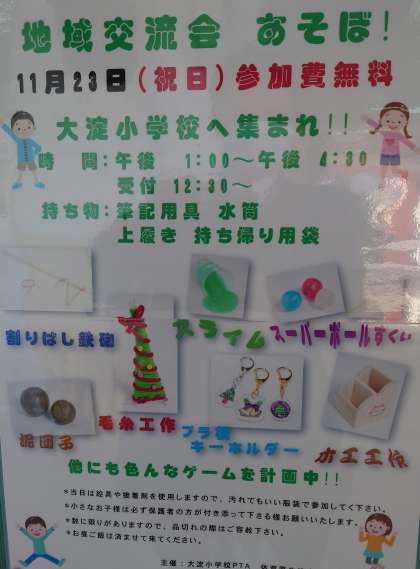 地域交流会 あそぼ!
11月23日(祝日)参加費無料
大淀小学校へ集まれ!!
時 間:午後 1:00～午後 4:30
受付 12:30～
持ち物:筆記用具 水筒
上履き 持ち帰り用袋
割りばし鉄砲
スライム
スーパーボールすくい
泥団子
毛糸工作
プラ板
キーホルダー
木工工作
他にも色んなゲームを計画中!!
*当日は絵具や接着剤を使用しますので、汚れてもいい服装で参加して下さい。
*小さなお子様は必ず保護者の方が付き添って下さる様お願いいたします。
*数に限りがありますので、品切れの際はご容赦下さい。
*お昼ご飯は済ませて来てください。
主催:大淀小学校PTA